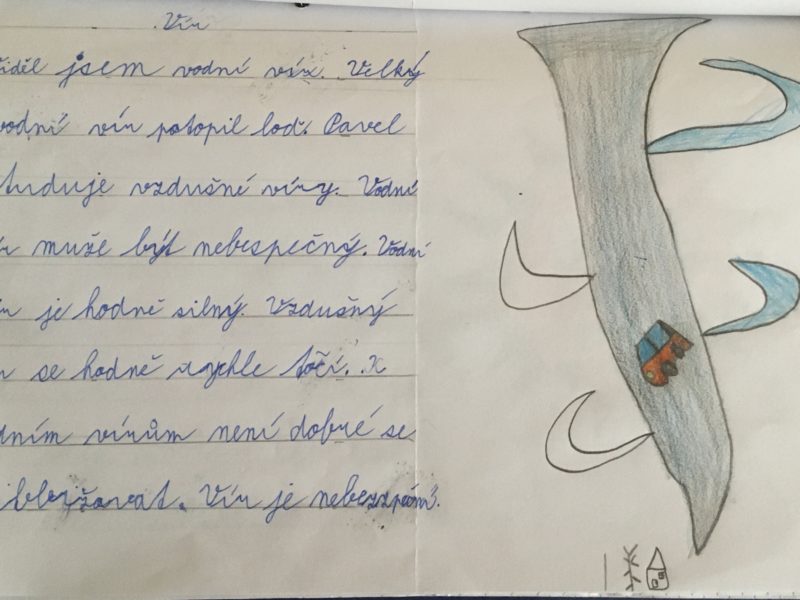 Vír
iděl jsem vodní vír. Velký
vodní vír potopil loď. Pavel
tuduje vzdušné víry. Vodní
r muže být nebezpečný. Vodní
r je hodně silný. Vzdušný
r se hodně rychle točí. K
dním vírům není dobré se
ibližovat. Vír je